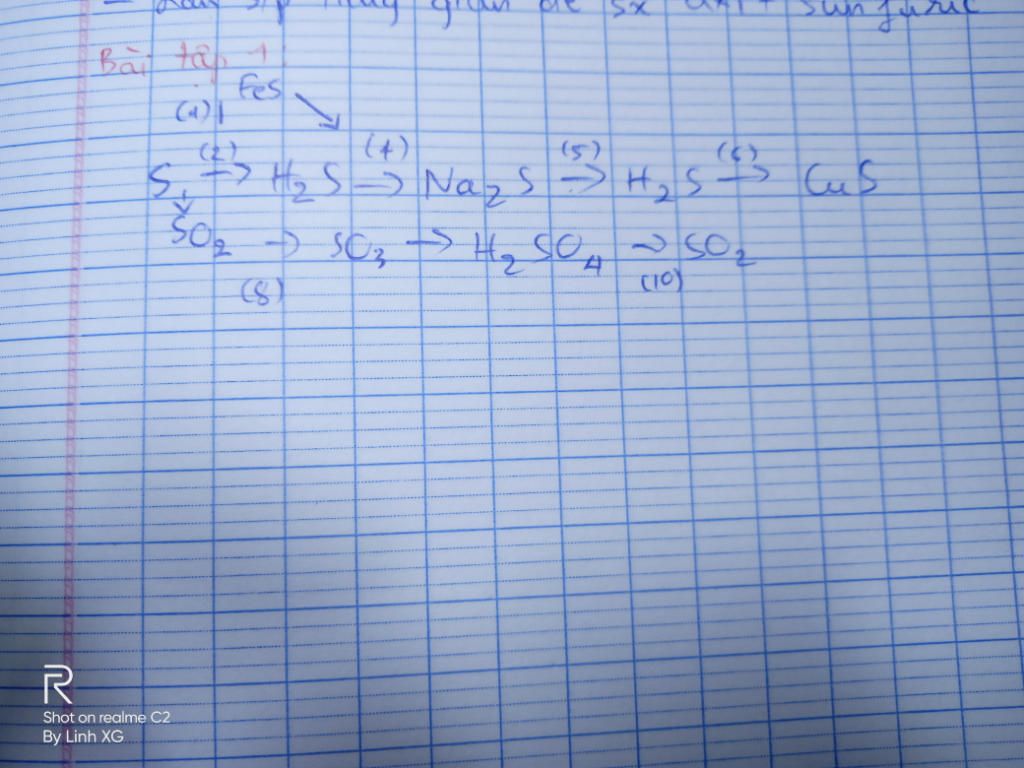 - sản sunfuric
Bài tập 1:
(1) FeS ↘
S (2) → H₂S (4) → Na₂S (5) → H₂S (6) → CuS
↓
SO₂ → SO₃ → H₂SO₄ → SO₂
(8) (10)
R
Shot on realme C2
By Linh XG